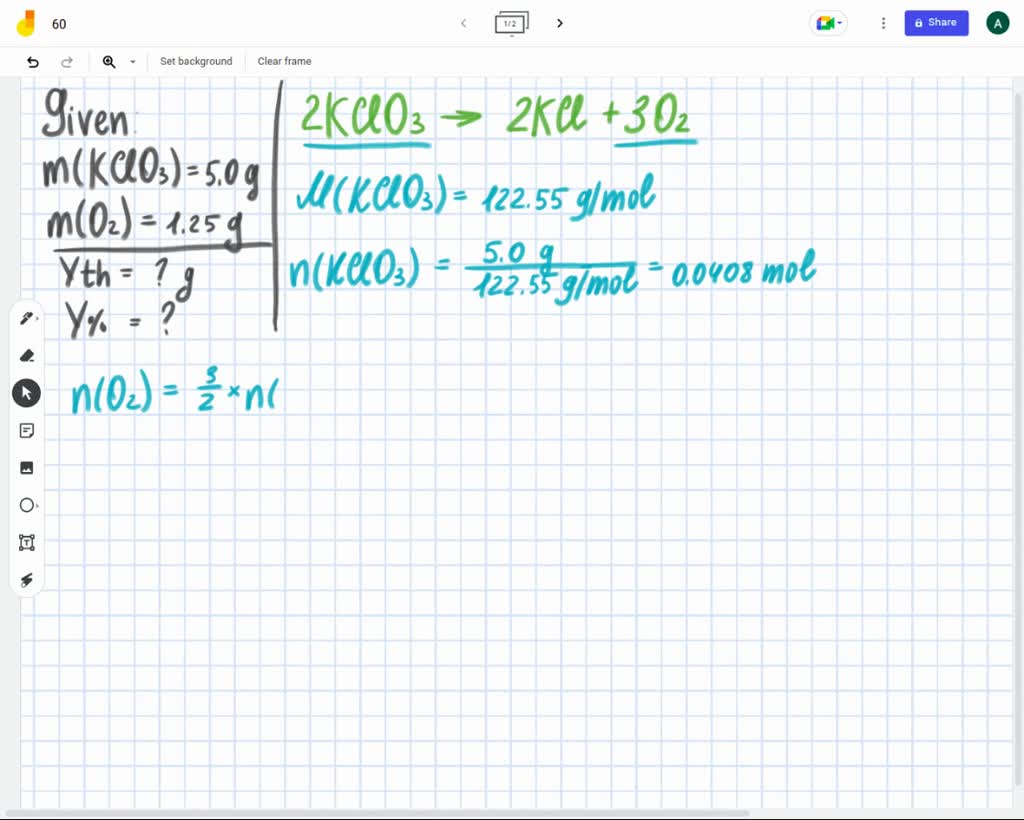 60
1/2
Share
A
Set background
Clear frame
Given:
m(KClO₃) = 5.0 g
m(O₂) = 1.25 g
Yth = ? g
Y% = ?
2KClO₃ → 2KCl + 3O₂
M(KClO₃) = 122.55 g/mol
n(KClO₃) = 5.0 g / 122.55 g/mol = 0.0408 mol
n(O₂) = 3/2 × n(